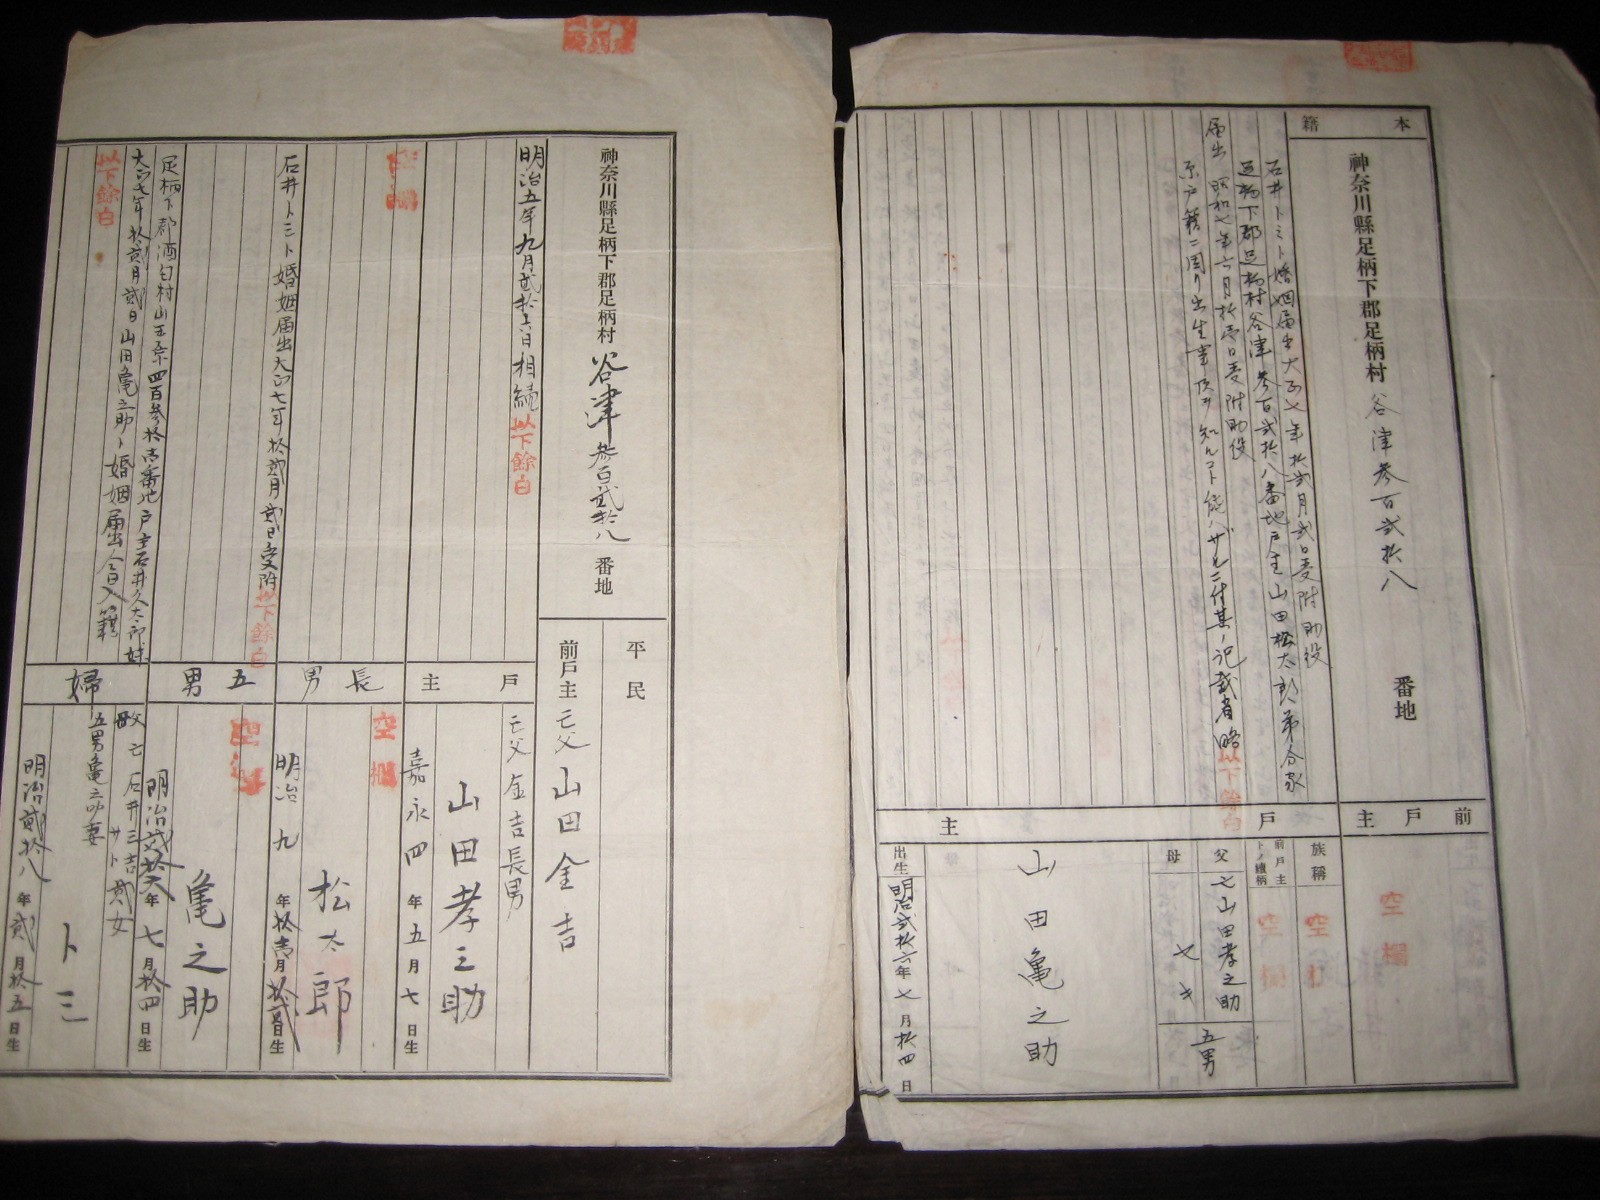 本籍
神奈川縣足柄下郡足柄村谷津参百弐拾八番地
前戸主
空欄
石井トミト婚姻届出大正七年拾弐月弐日受附助役
足柄下郡足柄村谷津参百弐拾八番地戸主山田松太郎弟分家
届出昭和七年六月拾壱日受附助役
原戸籍ニ因リ出生事項ヲ知ルコト能ハザルニ付其ノ記載省略以下餘白
戸主
族稱
空欄
前戸主トノ續柄
空欄
父
亡山田孝之助
母
五男
山田亀之助
出生
明治弐拾六年七月拾四日
神奈川縣足柄下郡足柄村谷津参百弐拾八番地
平民
前戸主亡父山田金吉
明治五年九月弐拾六日相続以下餘白
戸主
亡父金吉長男
山田孝之助
嘉永四年五月七日生
空欄
長男
空欄
松太郎
明治九年拾壱月拾弐日生
石井トミト婚姻届出大正七年拾弐月弐日受附以下餘白
五男
空欄
亀之助
明治弐拾六年七月拾四日生
足柄下郡酒匂村山王原四百参拾番地戸主石井久太郎妹
大正七年拾弐月弐日山田亀之助ト婚姻届出仝日入籍
以下餘白
婦
父亡石井三吉
母サト
弐女
五男亀之助妻
トミ
明治弐拾八年弐月拾五日生